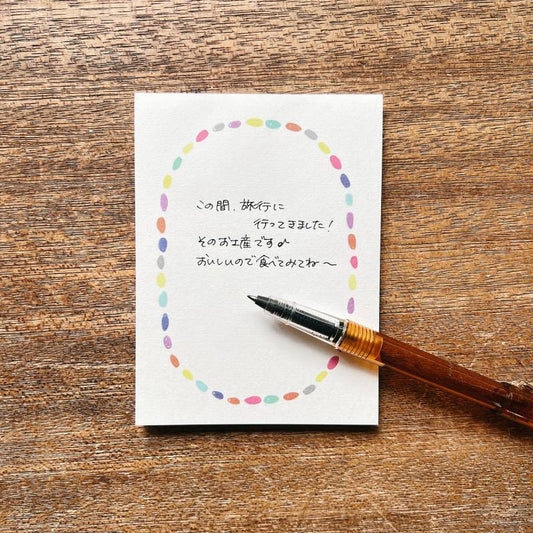 この間、旅行に
行ってきました!
そのお土産です♪
おいしいので食べてみてね～